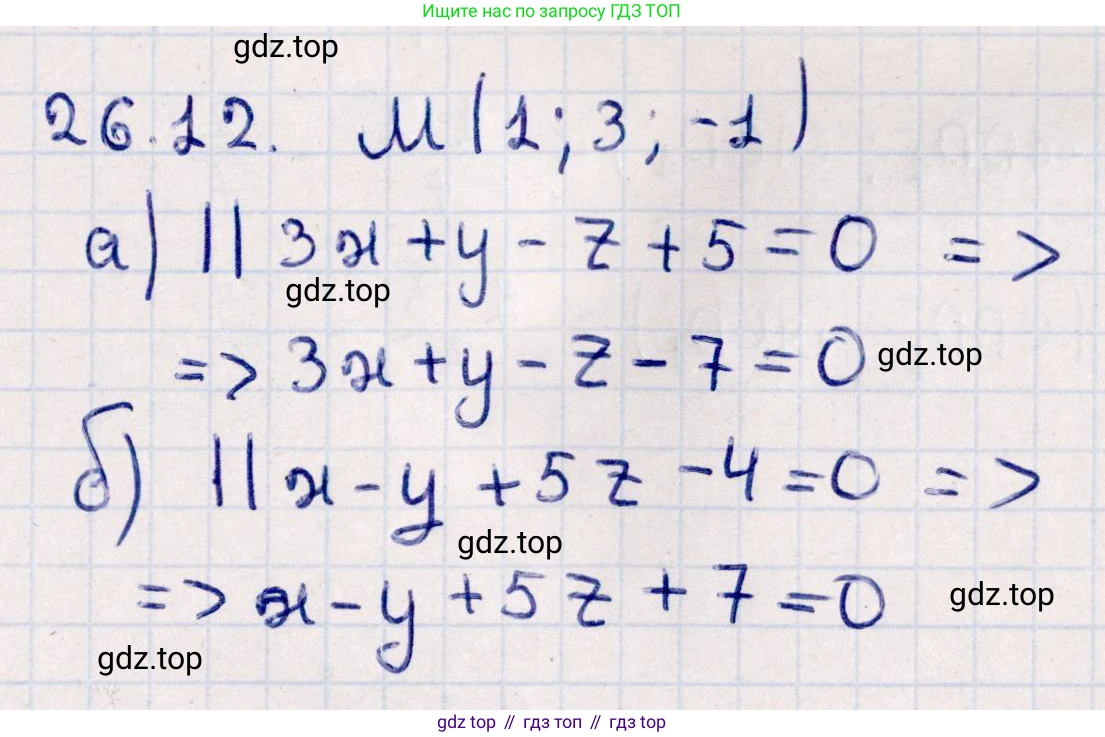 Ищите нас по запросу ГДЗ ТОП
gdz.top
26.12. M(1; 3; -1)
а) || 3x + y - z + 5 = 0 =>
gdz.top
=> 3x + y - z - 7 = 0 gdz.top
б) || x - y + 5z - 4 = 0 =>
gdz.top
=> x - y + 5z + 7 = 0 gdz.top
gdz.top
gdz top // гдз топ // gdz top